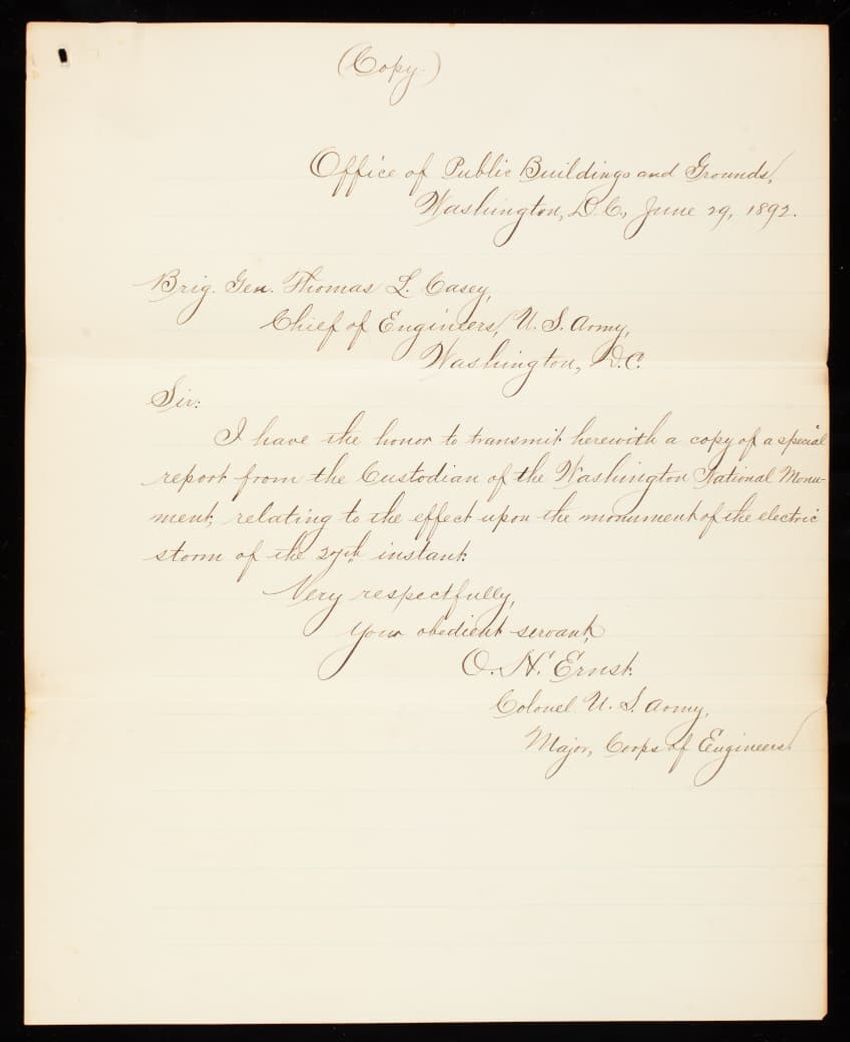 (Copy.)
Office of Public Buildings and Grounds,
Washington, D.C., June 29, 1892.
Brig. Gen. Thomas L. Casey,
Chief of Engineers, U. S. Army,
Washington, D.C.
Sir:
I have the honor to transmit herewith a copy of a special
report from the Custodian of the Washington National Monu-
ment, relating to the effect upon the monument of the electric
storm of the 27th instant.
Very respectfully,
Your obedient servant,
O. H. Ernst.
Colonel U. S. Army,
Major, Corps of Engineers.